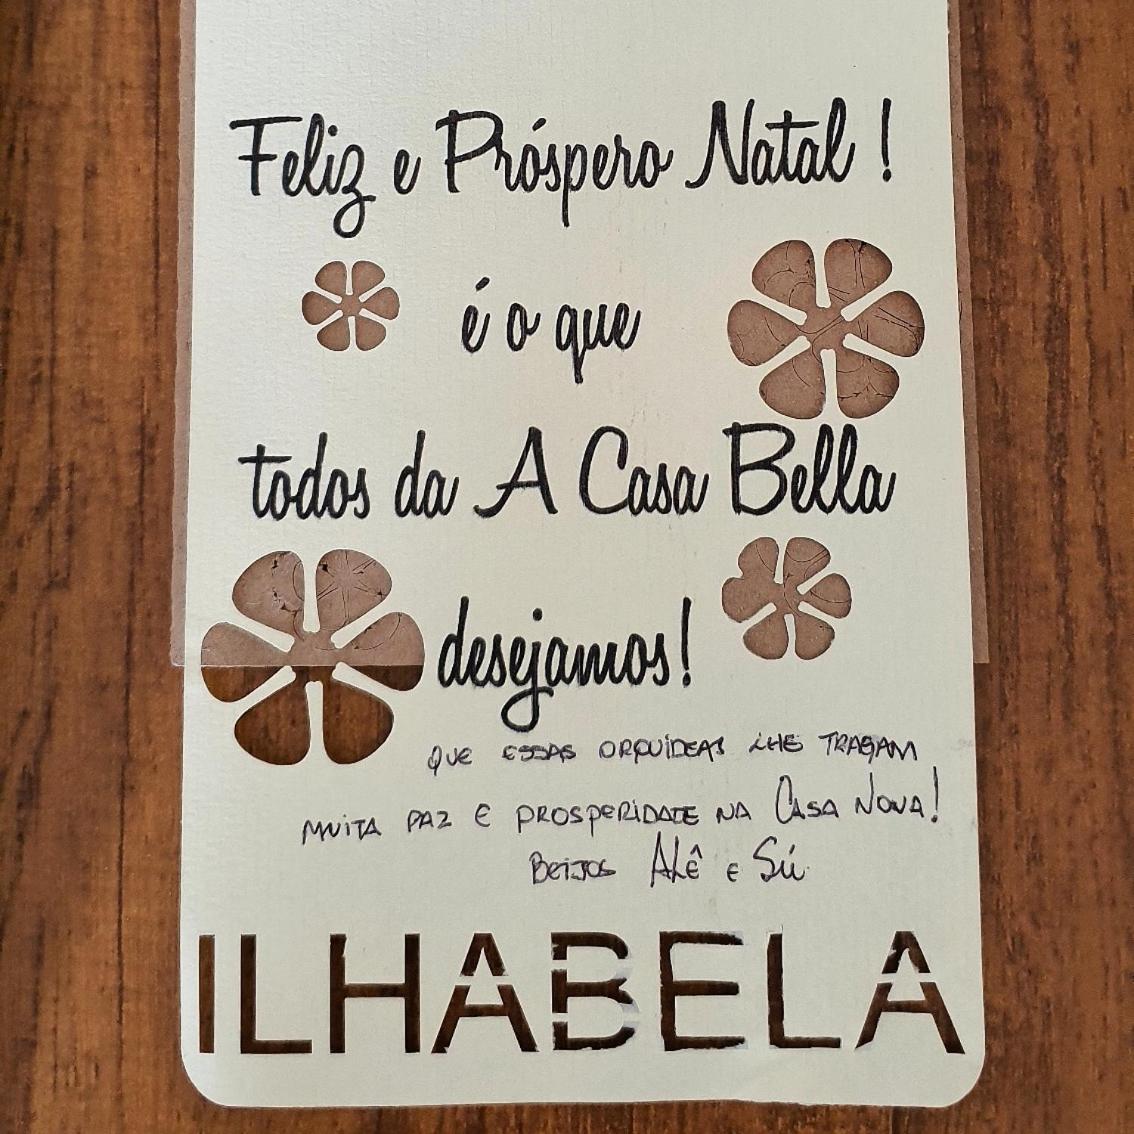 Feliz e Próspero Natal !
é o que
todos da A Casa Bella
desejamos!
QUE ESSAS ORQUIDEAS LHE TRAGAM
MUITA PAZ E PROSPERIDADE NA CASA NOVA!
BEIJOS ALÊ E SÚ
ILHABELA